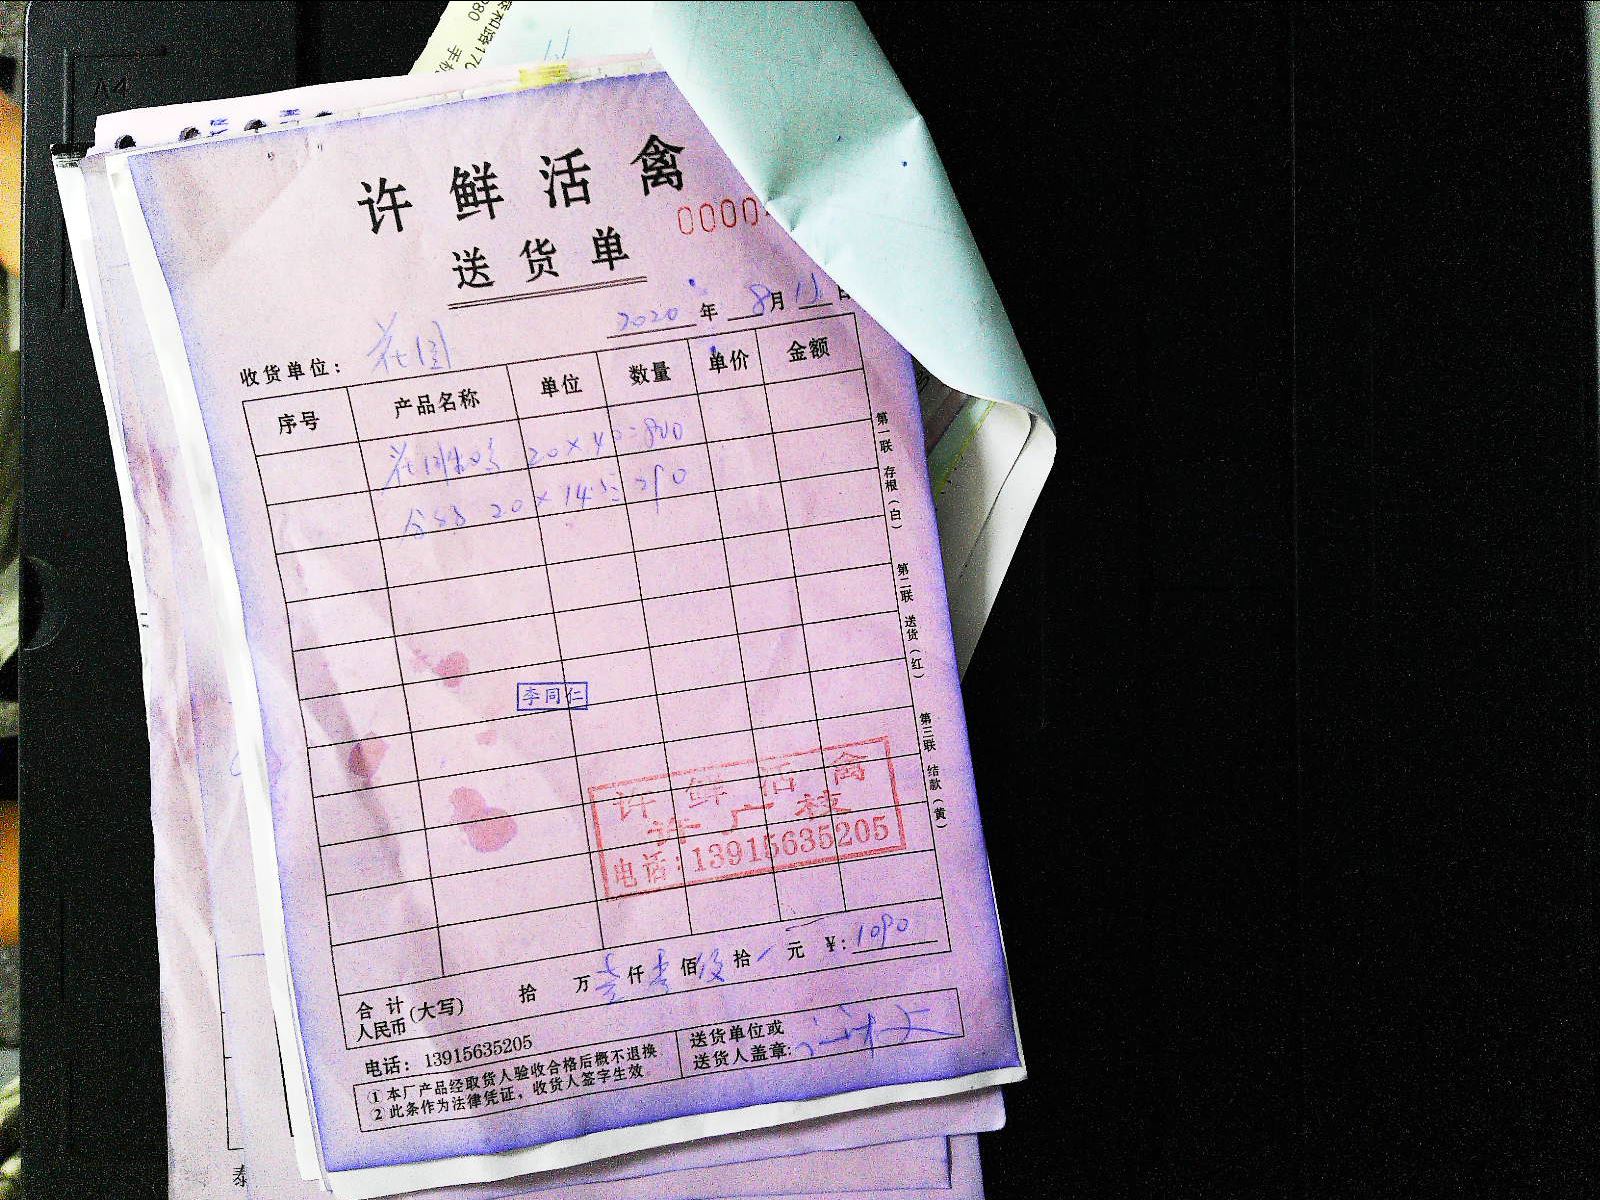 许鲜活禽
0000
送货单
2020年8月15日
收货单位：花园
序号 产品名称 单位 数量 单价 金额
20×40=800
20×14.5=290
第一联 存根（白）
第二联 送货（红）
第三联 结款（黄）
李同仁
许鲜活禽
许广枝
电话：13915635205
合计人民币(大写) 拾 万 壹 仟 零 佰 玖 拾 元 ¥：1090
电话：13915635205
①本厂产品经取货人验收合格后概不退换
②此条作为法律凭证，收货人签字生效
送货单位或
送货人盖章：
A4